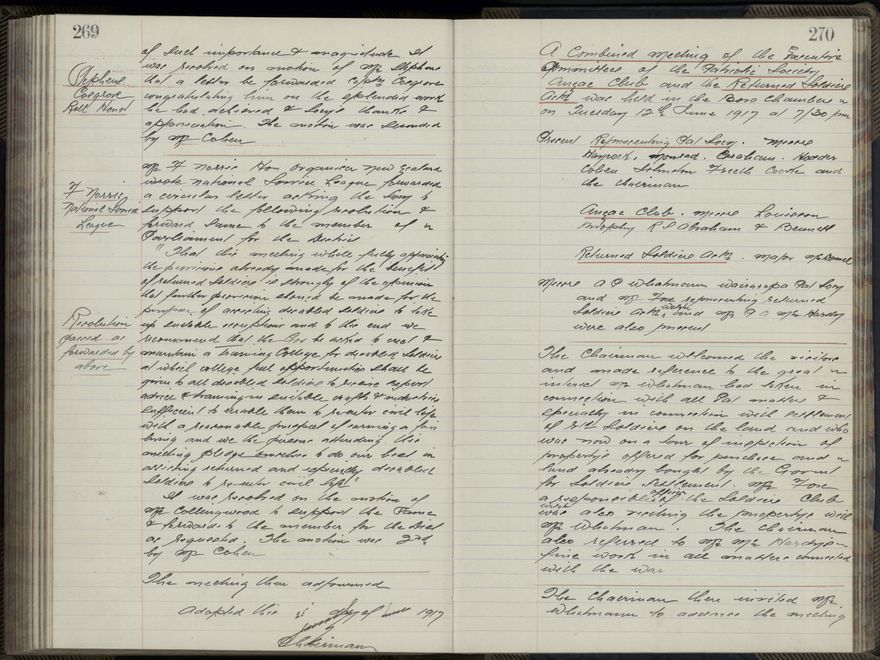 269
of such importance & magnitude it
was resolved on motion of Mr Stephens
that a letter be forwarded Capt Cosgrove
congratulating him on the splendid work
he had achieved & Socy's thanks &
appreciation. The motion was seconded
by Mr Cohen
Stephens
Cosgrove
Roll Honor
Mr F Norris Hon Organiser New Zealand
wrote National Service League forwarded
a circular letter asking the Socy to
support the following resolution &
forward same to the member of
Parliament for the district
F Norris
National Service
League
"That this meeting while fully appreciating
the provisions already made for the benefit
of returned Soldiers is strongly of the opinion
that further provision should be made for the
purpose of assisting disabled Soldiers to take
up suitable occupations and to this end we
recommend that the Gov be asked to erect &
maintain a training College for disabled Soldiers
at which college full opportunities shall be
given to all disabled Soldiers to receive expert
advice & training in suitable crafts & industries
sufficient to enable them to re-enter civil life
with a reasonable prospect of earning a fair
living and we the persons attending this
meeting pledge ourselves to do our best in
assisting returned and especially disabled
Soldiers to re-enter civil life"
Resolution
passed as
forwarded by
above
It was resolved on the motion of
Mr Collingwood to support the same
& forward to the member for the Dist
as requested. The motion was 2nd
by Mr Cohen
The meeting then adjourned
Adopted this day of 1917
Chairman
270
A Combined meeting of the Executive
Committees of the Patriotic Society
Anzac Club and the Returned Soldiers
Assn was held in the Boro Chambers
on Tuesday 12th June 1917 at 7/30 pm
Present Representing Pat Socy. Messrs
Haycock, Monrad. Graham. Hodder
Cohen Johnston Freeth Cooke and
the Chairman
Anzac Club. Messrs Louisson
R S Abraham & Bennett
Returned Soldiers Assn. Major
Messrs A P Whatmann Wairarapa Pat Socy
and Mr Fone representing returned
Soldiers Assn and Mr Hardy
were also present
The Chairman welcomed the visitors
and made reference to the great
interest Mr Whatman had taken in
connection with all Pat matters &
specially in connection with settlement
of Rtd Soldiers on the land and who
was now on a tour of inspection of
property's offered for purchase and
land already bought by the Govmnt
for Soldiers Settlement. Mr Fone
a responsible officer of the Soldiers Club
was also visiting the propertys with
Mr Whatman. The Chairman
also referred to Mr Hardy's
fine work in all matters connected
with the war
The Chairman then invited Mr
Whatmann to address the meeting